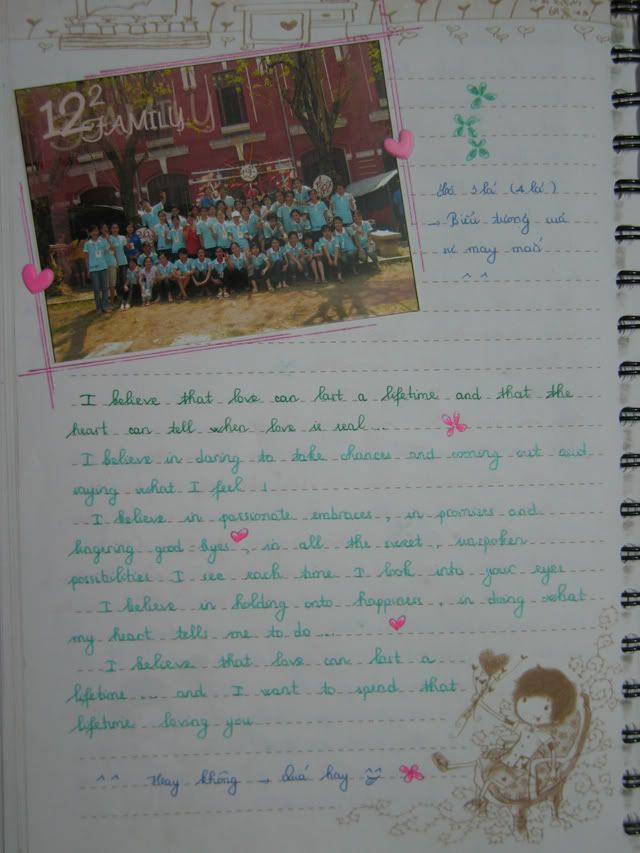 12² FAMILY
Hoa 3 lá (4 lá)
→ Biểu tượng của
sự may mắn
^ ^
I believe that love can last a lifetime and that the
heart can tell when love is real...
I believe in daring to take chances and coming out and
saying what I feel !
I believe in passionate embraces, in promises and
lingering good-byes, in all the sweet, unspoken
possibilities I see each time I look into your eyes
I believe in holding onto happiness, in doing what
my heart tells me to do...
I believe that love can last a
lifetime... and I want to spend that
lifetime loving you
^ ^ Hay không → Quá hay